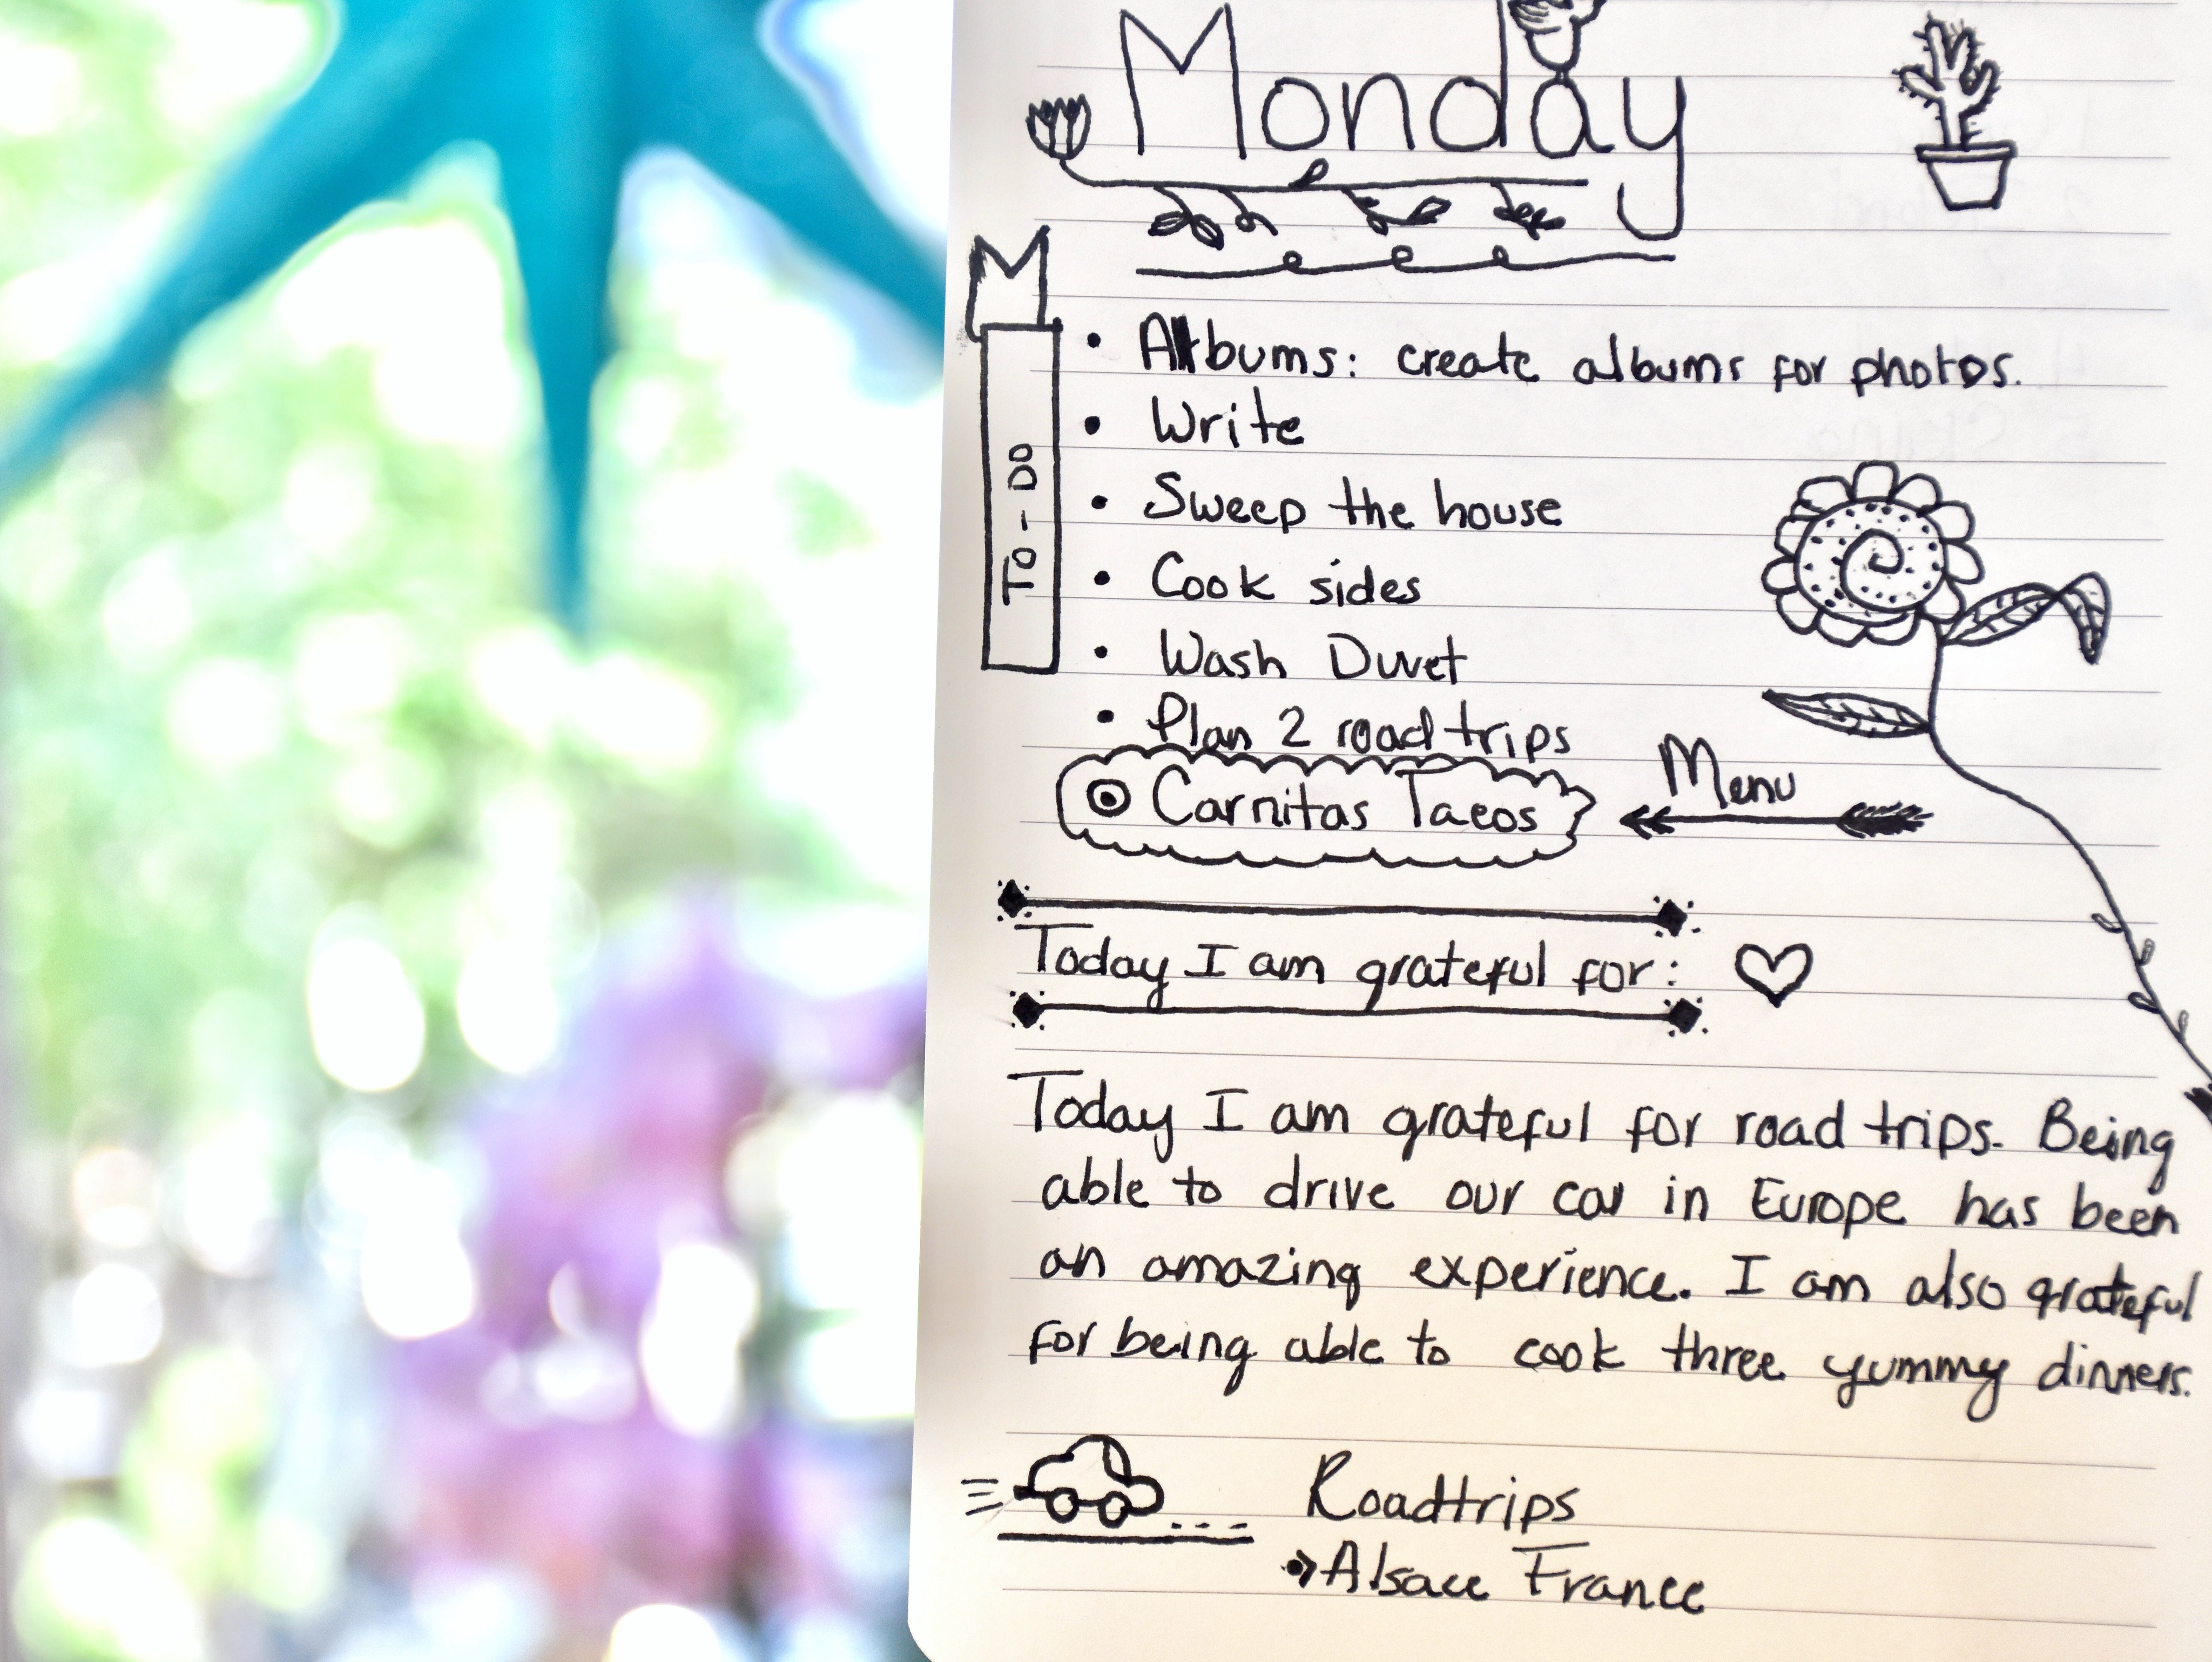 Monday
TO-DO
• Albums: create albums for photos.
• Write
• Sweep the house
• Cook sides
• Wash Duvet
• Plan 2 road trips
Carnitas Tacos
Menu
Today I am grateful for:
Today I am grateful for road trips. Being
able to drive our car in Europe has been
an amazing experience. I am also grateful
for being able to cook three yummy dinners.
Roadtrips
Alsace France